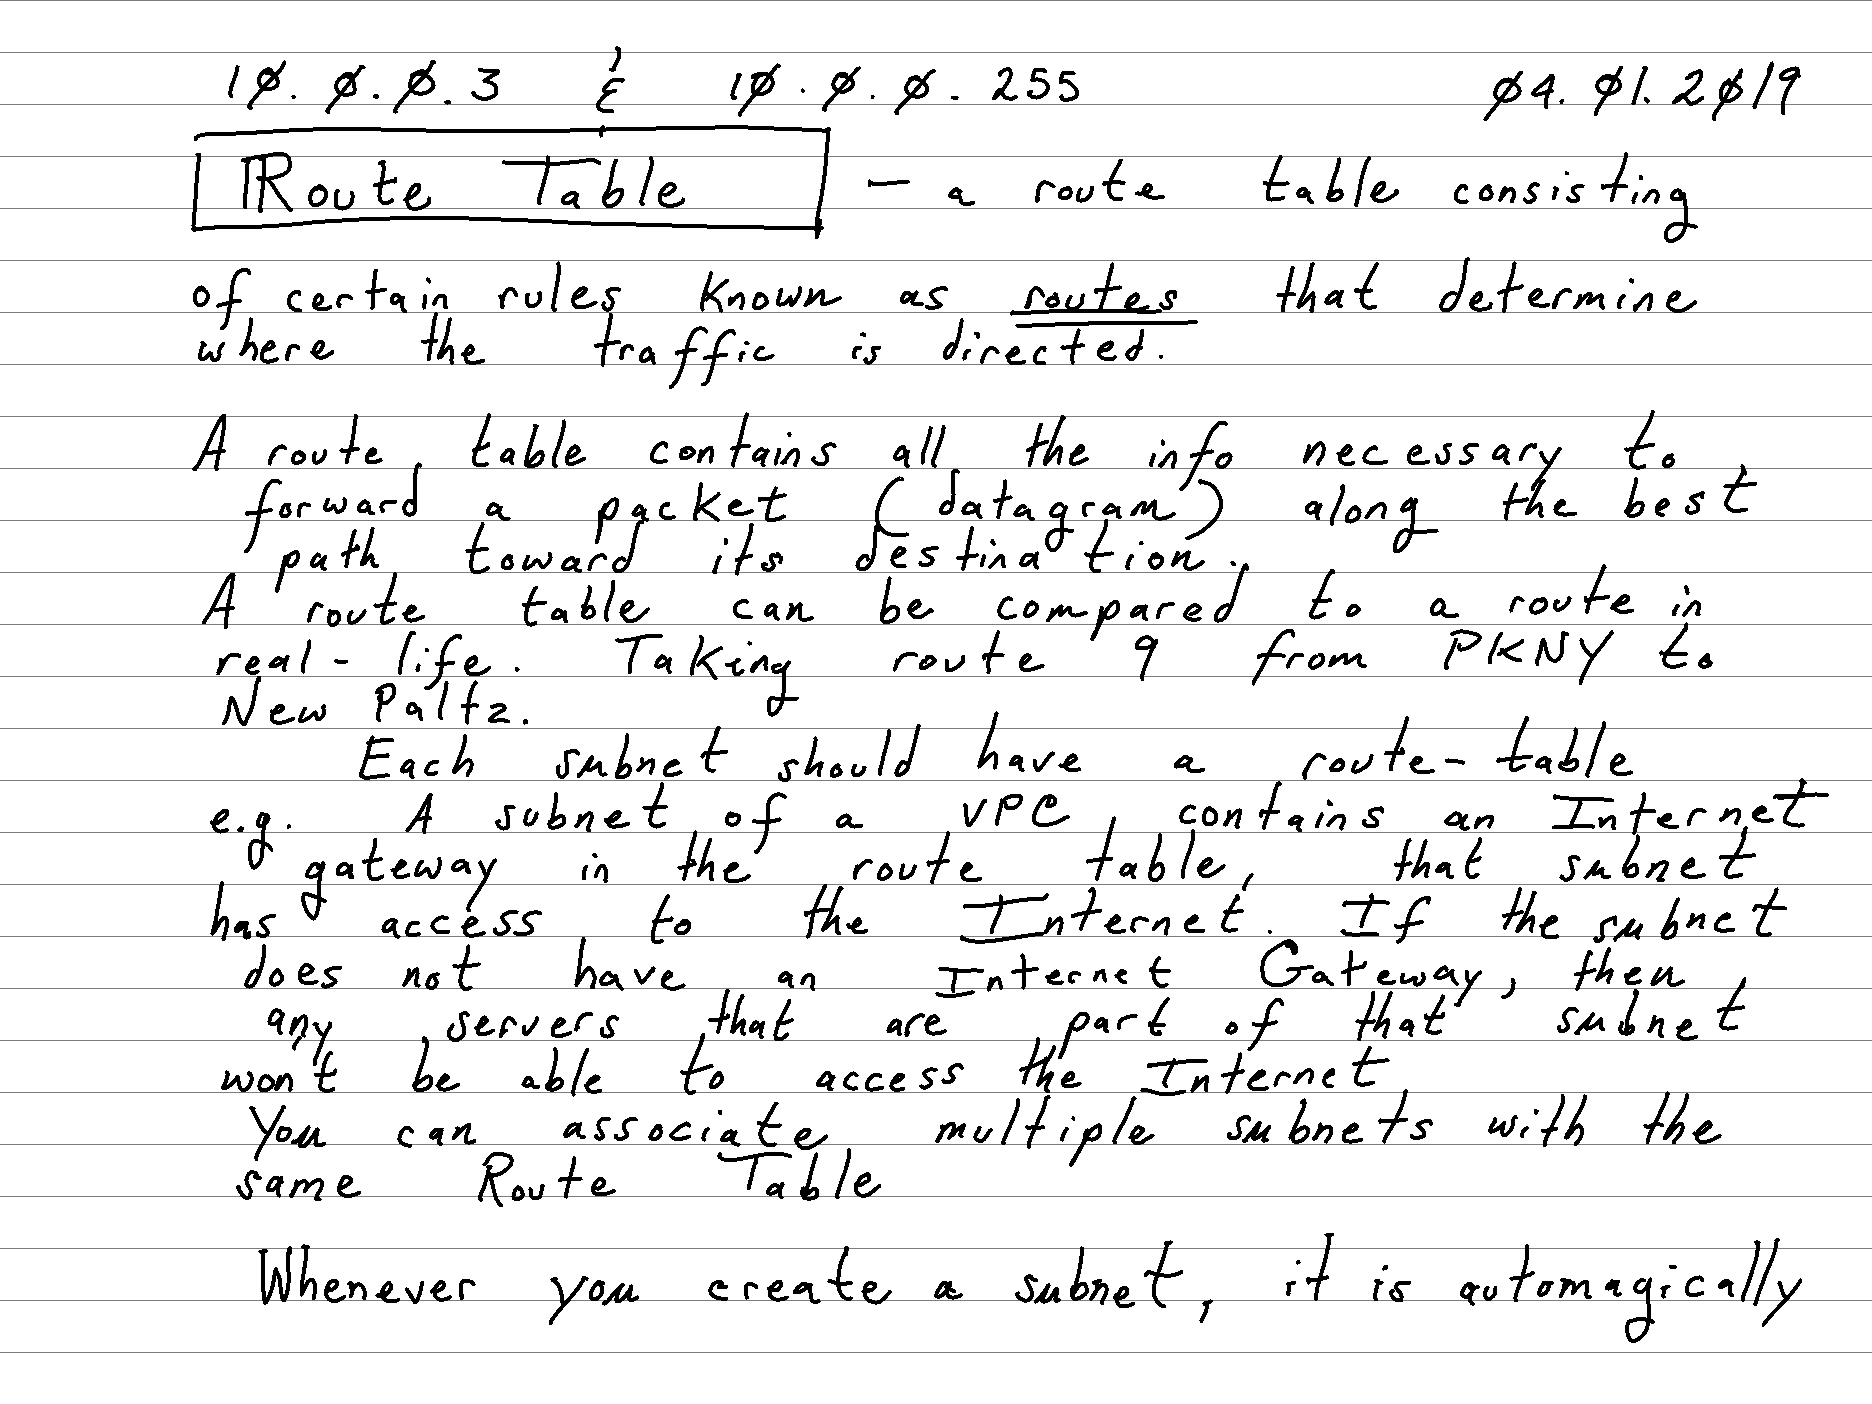 1Ø.Ø.Ø.3 & 1Ø.Ø.Ø.255 Ø4.Ø1.2Ø19
Route Table - a route table consisting
of certain rules known as routes that determine
where the traffic is directed.
A route table contains all the info necessary to
forward a packet (datagram) along the best
path toward its destination.
A route table can be compared to a route in
real-life. Taking route 9 from PKNY to
New Paltz.
Each subnet should have a route-table
e.g. A subnet of a VPC contains an Internet
gateway in the route table, that subnet
has access to the Internet. If the subnet
does not have an Internet Gateway, then
any servers that are part of that subnet
won't be able to access the Internet
You can associate multiple subnets with the
same Route Table
Whenever you create a subnet, it is automagically